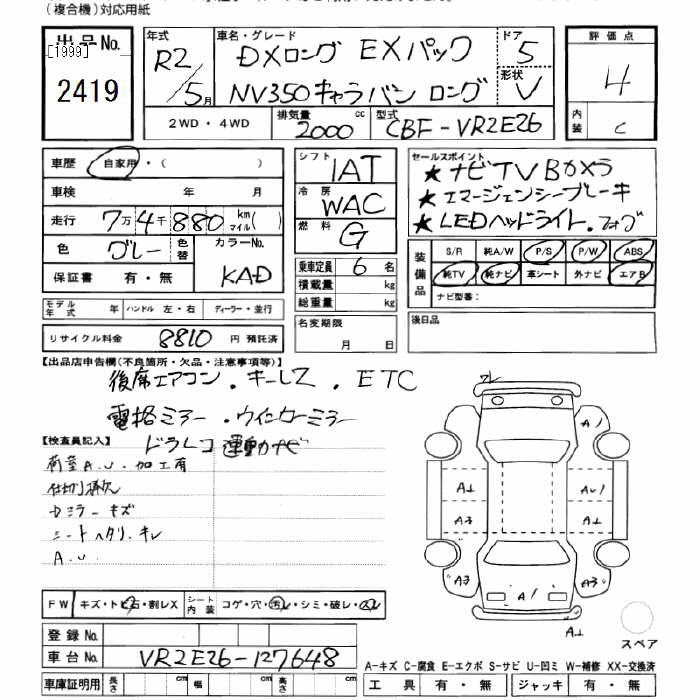 (複合機)対応用紙
出品No.
[1999]
2419
年式
R2/5月
車名・グレード
DXロング EXパック
NV350キャラバン ロング
ドア
5
形状
V
評価点
4
内装
C
2WD・4WD
排気量
2000 cc
型式
CBF-VR2E26
車歴 自家用・( )
車検 年 月
走行 7万4千880 km マイル( )
色 グレー 色替 カラーNo. KAD
保証書 有・無
モデル年式 年 ハンドル 左・右 ディーラー・並行
リサイクル料金 8810 円 預託済
シフト IAT
冷房 WAC
燃料 G
乗車定員 6 名
積載量 kg
総重量 kg
名変期限
月 日
セールスポイント
★ナビTV Bカメラ
★エマージェンシーブレーキ
★LEDヘッドライト.フォグ
装備品
S/R 純A/W P/S P/W ABS
純TV 純ナビ 革シート 外ナビ エアB
ナビ型番:
後日品
【出品店申告欄(不良箇所・欠品・注意事項等)】
後席エアコン.キーレス.ETC
電格ミラー.ウインカーミラー
ドラレコ 連動ナビ
【検査員記入】
荷室A.U.加工有
仕切り
ミラーキズ
シートヘタリ.キレ
A.U.
FW キズ・トビ石・割レX シート内装 コゲ・穴・汚レ・シミ・破レ・スレ
登録No.
車台No. VR2E26-127648
車庫証明用 長さ cm 幅 cm 高さ cm
ワレ
A1
A1
A3
AU1
A1
A3
A1
A3
A1
スペア
A-キズ C-腐食 E-エクボ S-サビ U-凹ミ W-補修 XX-交換済
工具 有・無 ジャッキ 有・無